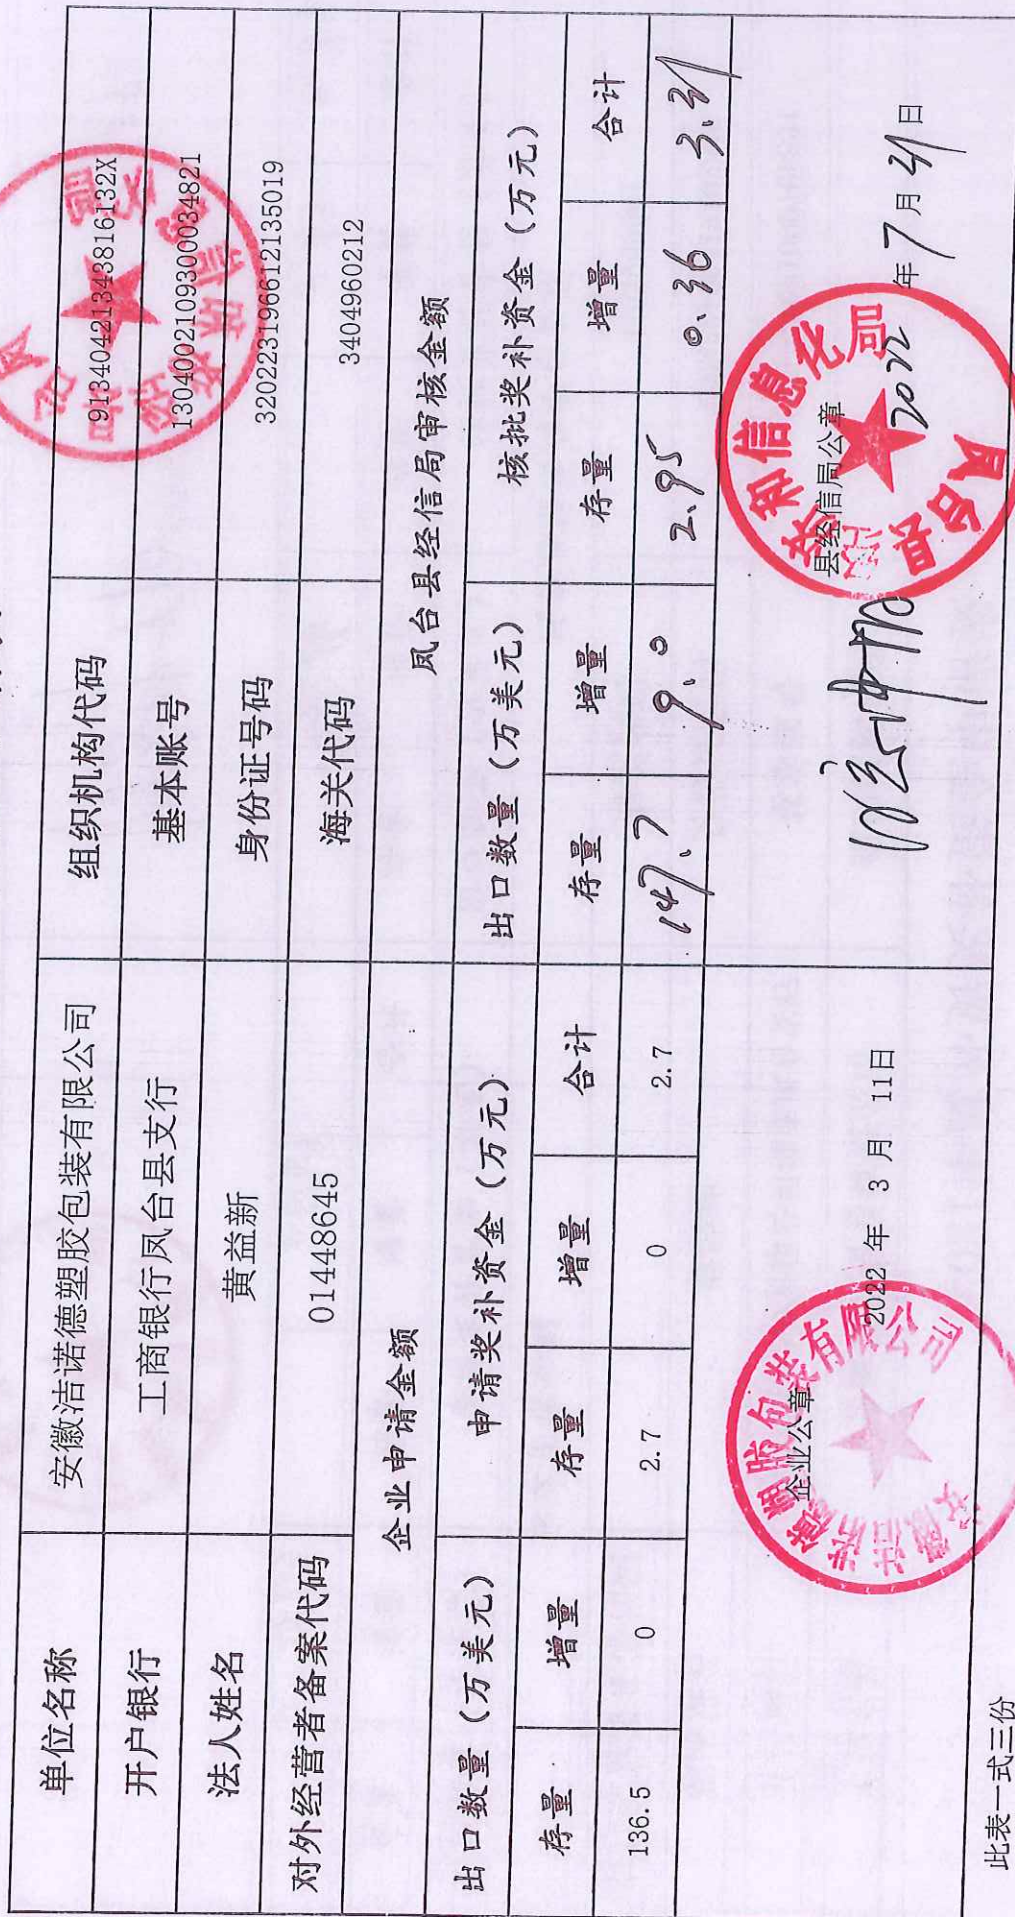 单位名称 安徽洁诺德塑胶包装有限公司 组织机构代码 91340421343816132X
开户银行 工商银行凤台县支行 基本账号 1304002109300034821
法人姓名 黄益新 身份证号码 320223196612135019
对外经营者备案代码 01448645 海关代码 3404960212
企业申请金额 凤台县经信局审核金额
出口数量（万美元） 申请奖补资金（万元） 出口数量（万美元） 核批奖补资金（万元）
存量 增量 存量 增量 合计 存量 增量 存量 增量 合计
136.5 0 2.7 0 2.7 147.7 9.0 2.95 0.36 3.31
企业公章 县经信局公章
2022 年 3 月 11日 2022 年 7 月 31 日
安徽洁诺德塑胶包装有限公司
凤台县经济和信息化局
此表一式三份